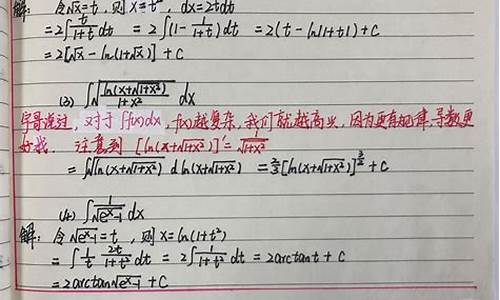 解: 令√x=t, 则 x=t², dx=2tdt
=2∫t/(1+t) dt = 2∫(1-1/(1+t))dt = 2(t-ln|1+t|)+C
=2[√x-ln(1+√x)]+C
(3) ∫√(ln(x+√(1+x²))/(1+x²)) dx
宇哥说过,对于∫f(x)dx,f(x)越复杂,我们就越高兴,因为更有规律,导数更
好找. 注意到 [ln(x+√(1+x²))]'=1/√(1+x²)
=∫√(ln(x+√(1+x²))) d ln(x+√(1+x²)) = 2/3[ln(x+√(1+x²))]^(3/2)+C
(4) ∫1/√(eˣ-1) dx
解: 令√(eˣ-1)=t, 则 x=ln(1+t²)
=∫1/t · 2t/(1+t²) dt = 2∫1/(1+t²) dt = 2arctant+C
=2arctan√(eˣ-1)+C